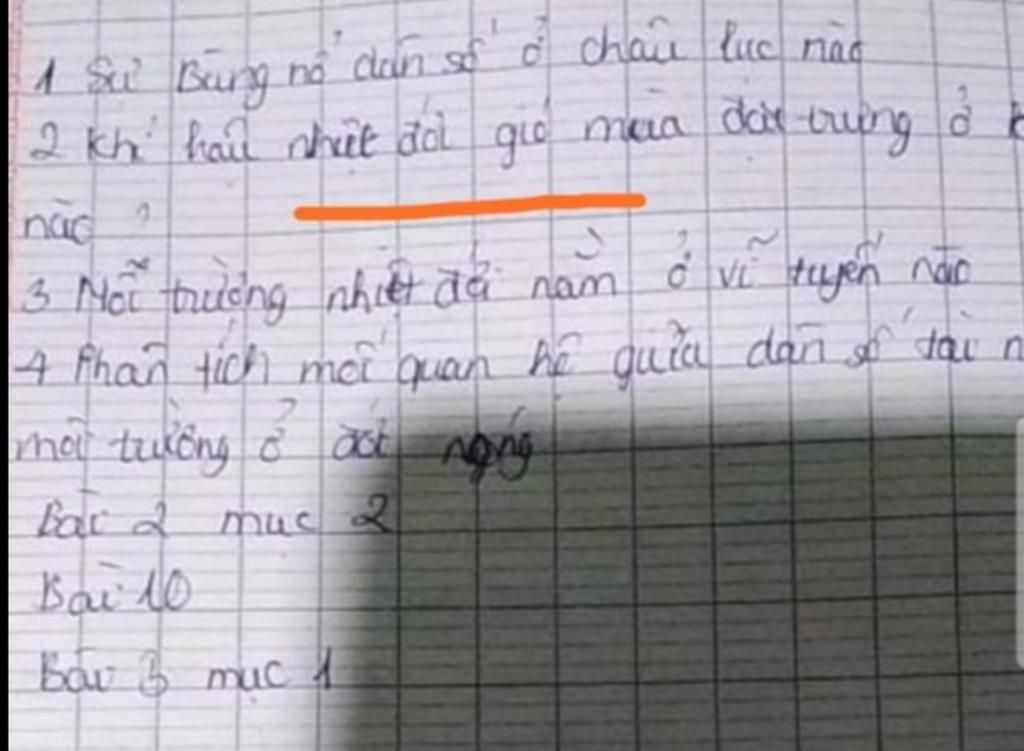 1 Sự Bùng nổ dân số ở châu lục nào
2 Khí hậu nhiệt đới gió mùa đặc trưng ở k
nào ?
3 Môi trường nhiệt đới nằm ở vĩ tuyến nào
4 Phân tích mối quan hệ giữa dân số tài n
môi trường ở đới nóng
Bài 2 mục 2
Bài 10
Bài 3 mục 1